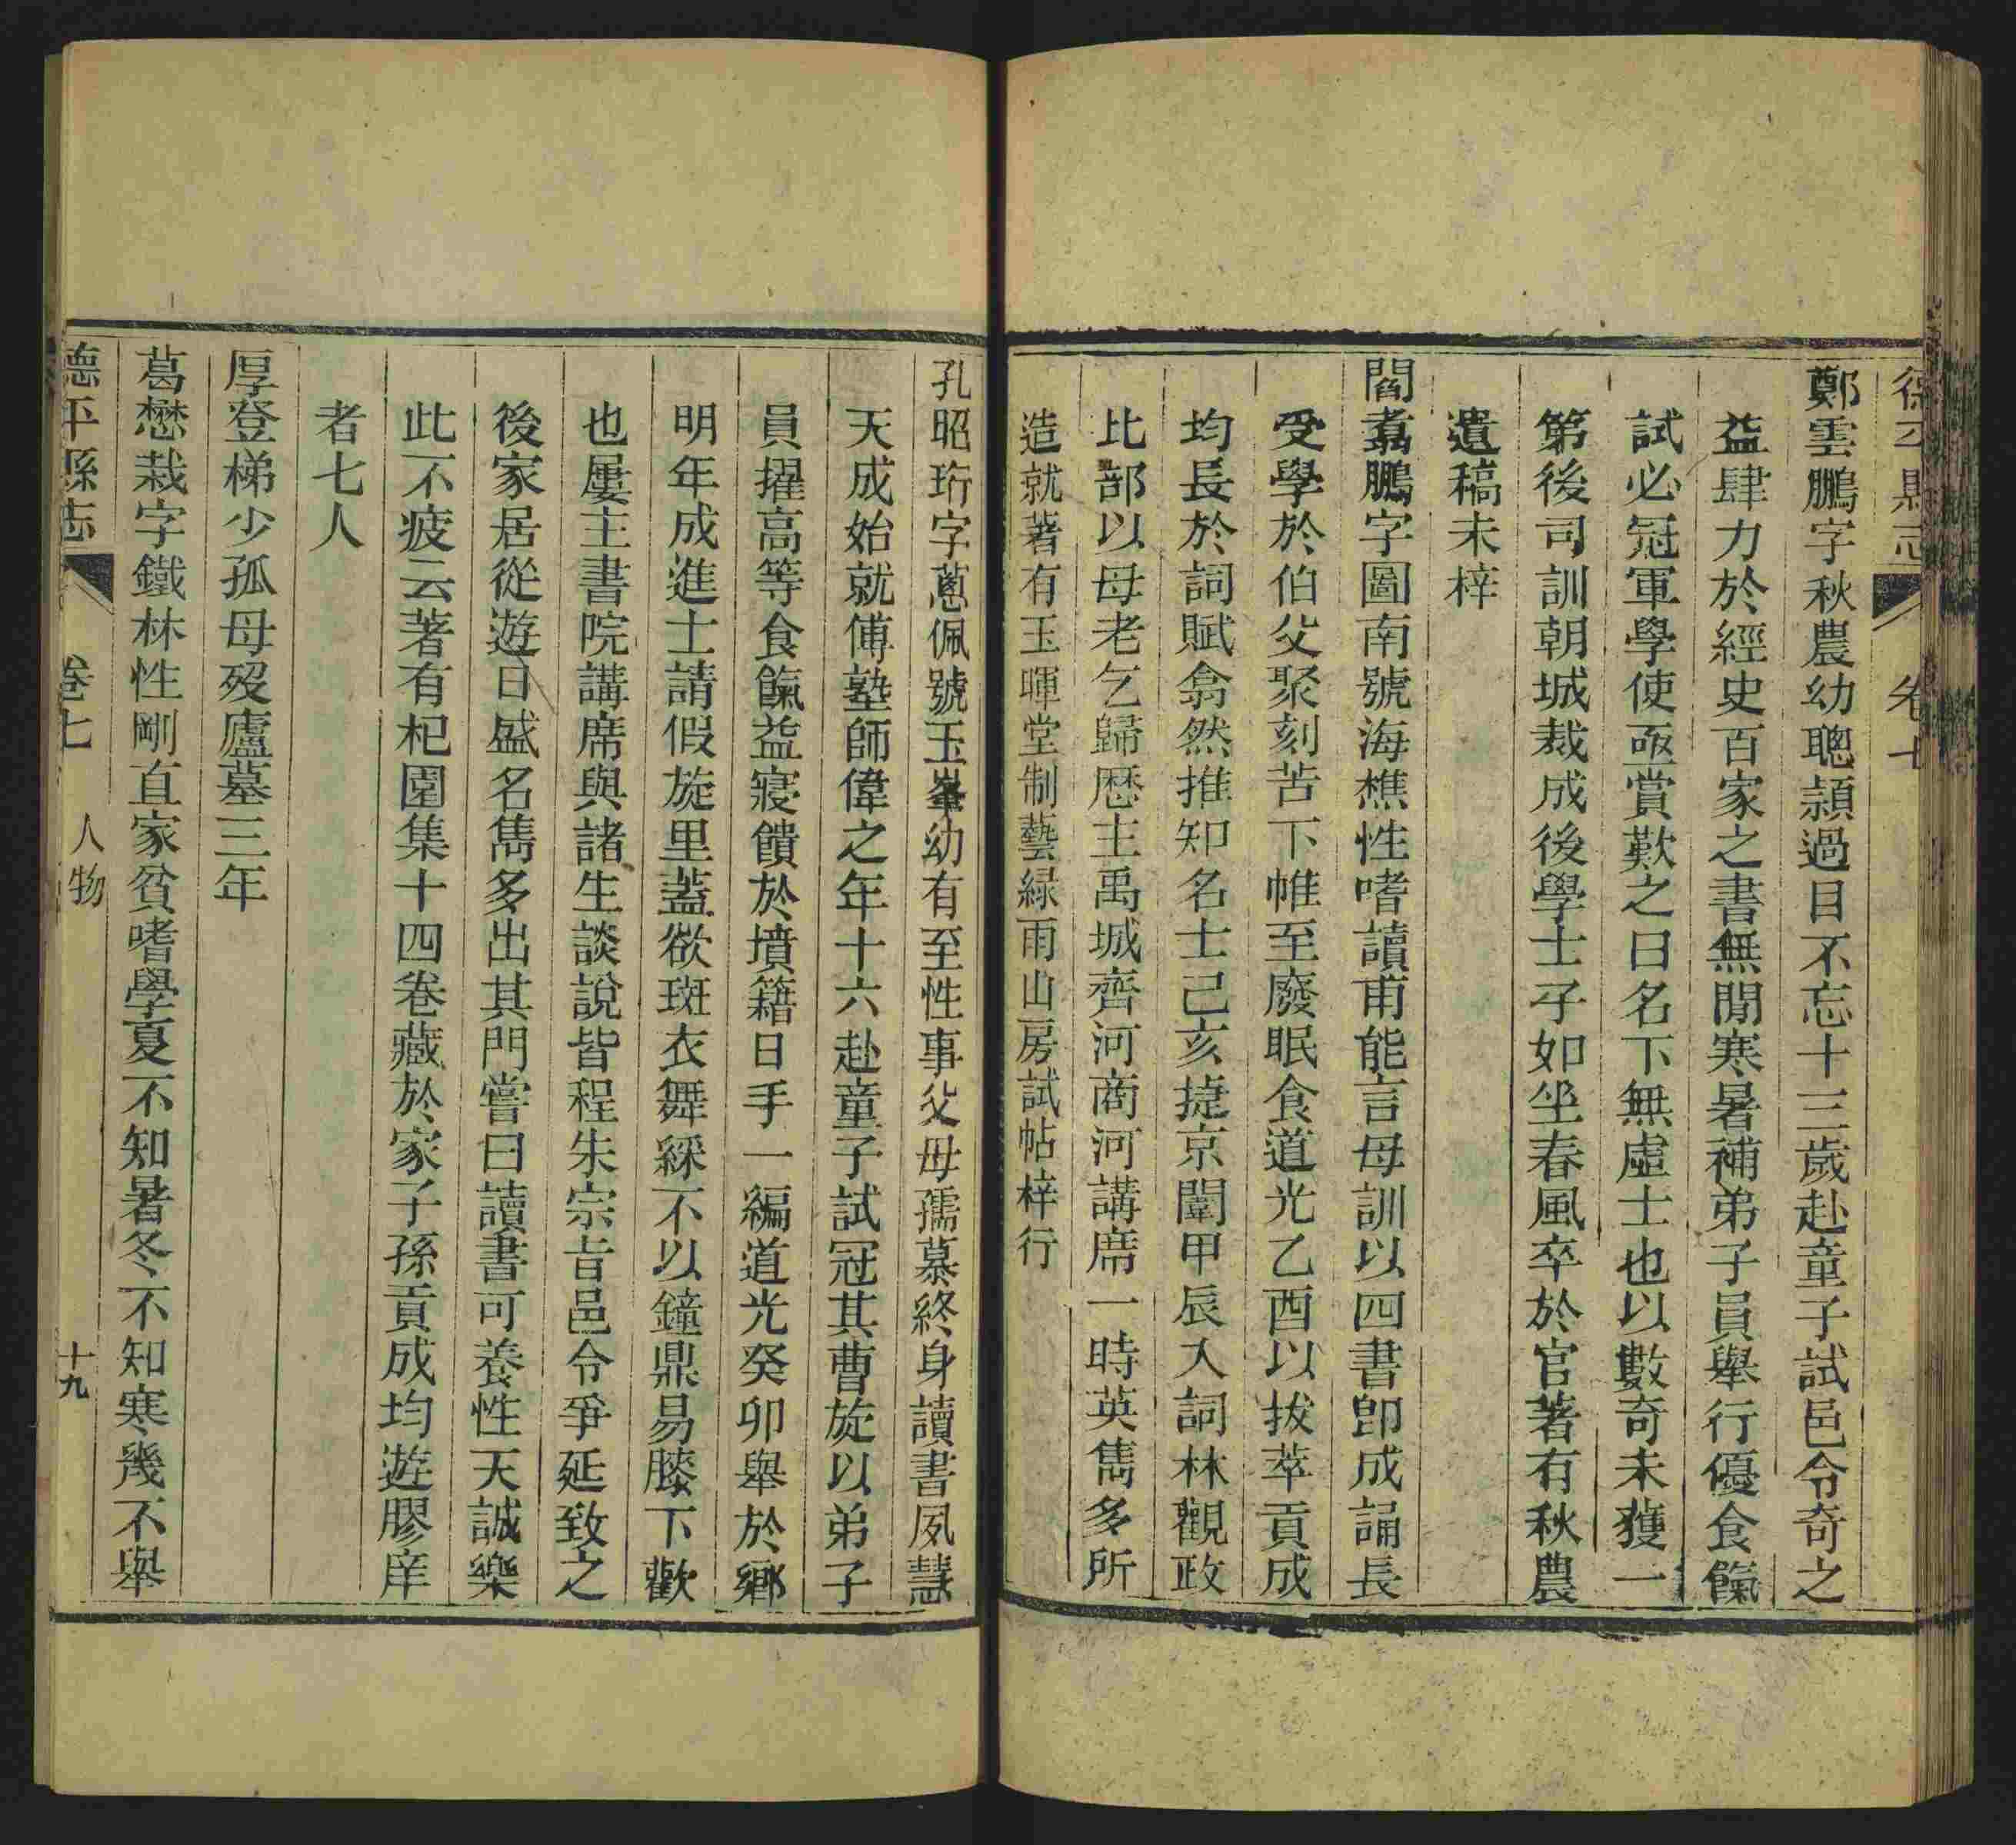 德平縣志 卷七
鄭雲鵬字秋農幼聰頴過目不忘十三歲赴童子試邑令奇之
益肆力於經史百家之書無閒寒暑補弟子員舉行優食餼
試必冠軍學使亟賞歎之曰名下無虛士也以數奇未獲一
第後司訓朝城裁成後學士子如坐春風卒於官著有秋農
遺稿未梓
閻翥鵬字圖南號海樵性嗜讀甫能言母訓以四書卽成誦長
受學於伯父聚刻苦下帷至廢眠食道光乙酉以拔萃貢成
均長於詞賦翕然推知名士己亥捷京闈甲辰入詞林觀政
比部以母老乞歸歷主禹城齊河商河講席一時英雋多所
造就著有玉暉堂制藝緑雨山房試帖梓行
孔昭珩字蔥佩號玉峯幼有至性事父母孺慕終身讀書夙慧
天成始就傅塾師偉之年十六赴童子試冠其曹旋以弟子
員擢高等食餼益寢饋於墳籍日手一編道光癸卯舉於鄉
明年成進士請假旋里蓋欲斑衣舞綵不以鐘鼎易膝下歡
也屢主書院講席與諸生談說皆程朱宗旨邑令爭延致之
後家居從遊日盛名雋多出其門嘗曰讀書可養性天誠樂
此不疲云著有杞園集十四卷藏於家子孫貢成均遊膠庠
者七人
厚登梯少孤母歿廬墓三年
葛懋栽字鐵林性剛直家貧嗜學夏不知暑冬不知寒幾不舉
德平縣志 卷七 人物 十九